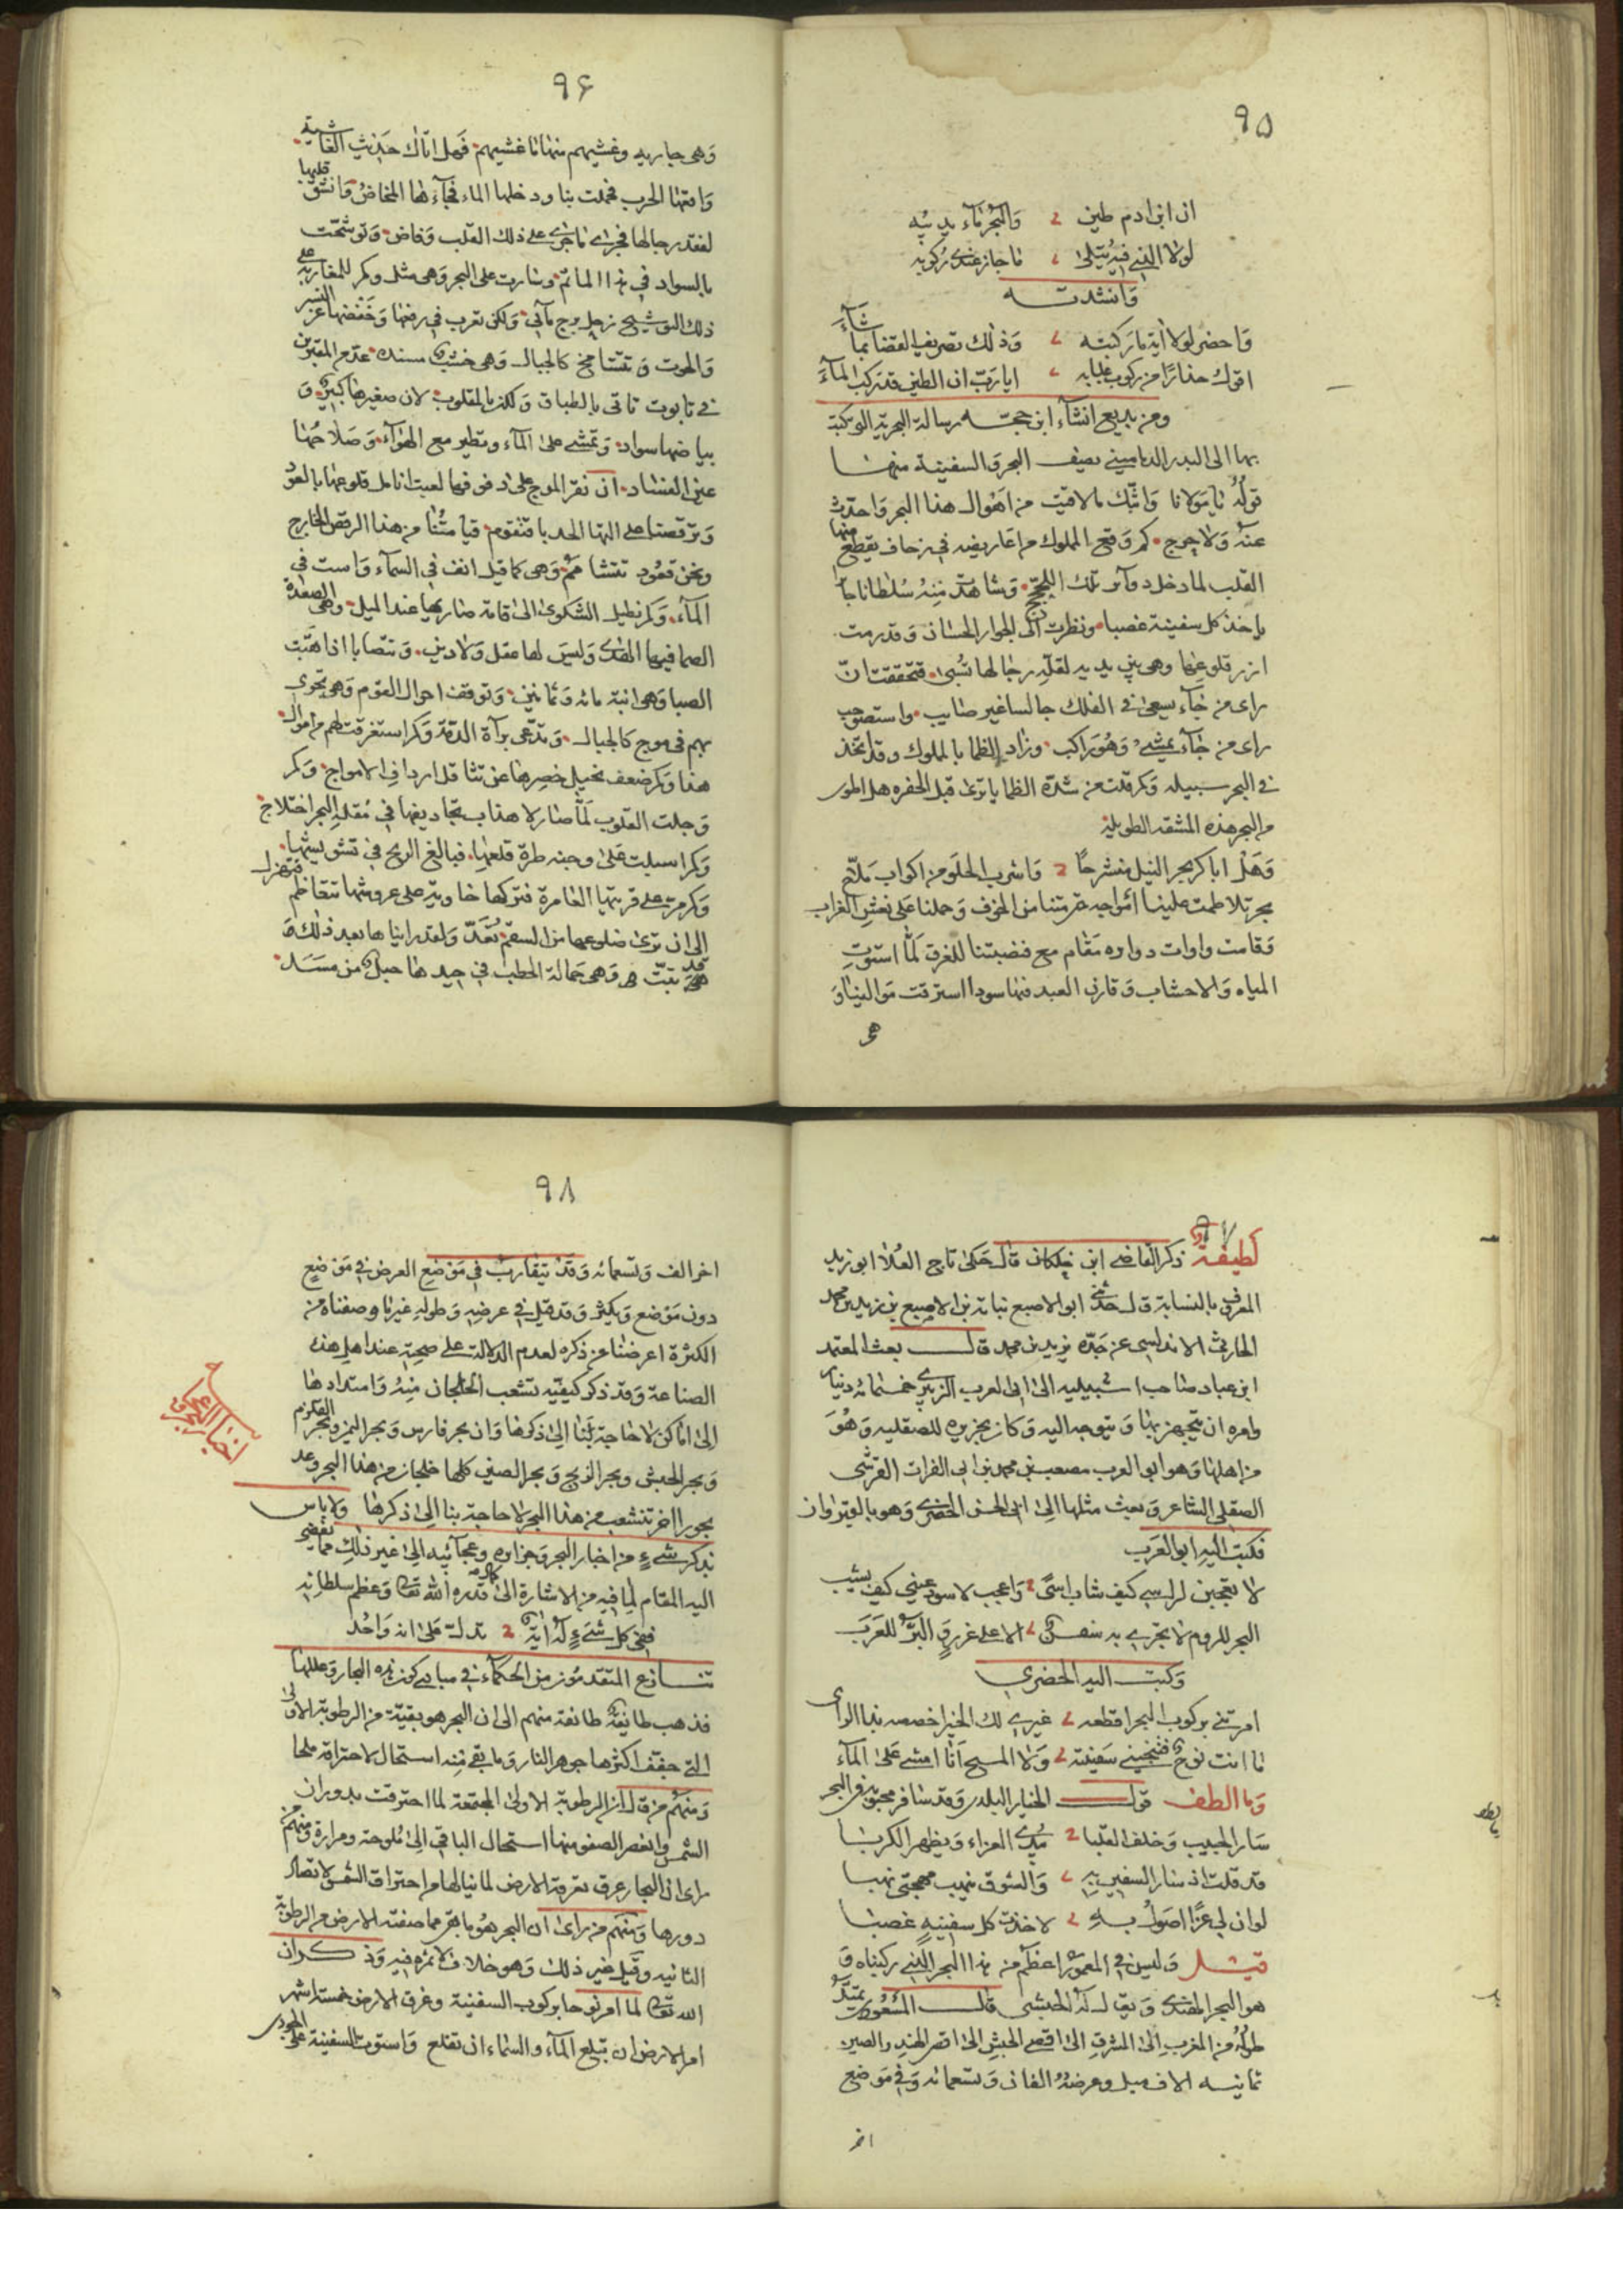 ٩٥
ان ابن ادم طين ، والبحر ماء يذيبه
لولا الذي فيه يتلى ، ما جاز عندي ركوبه
وانشدته
واخضر لولا اية ما ركبته ، وذلك تصريف القضا بما شآء
اقول حذارا من ركوب عبابه ، ايا رب ان الطين قد ركب المآء
ومن بديع انشآء ابن حجته رسالة البحرية الذي كتبه
بها الى البدر الدماميني يصف البحر والسفينة منها
قوله يا مولانا وابثك ما لاقيت من اهوال هذا البحر واحدث
عنه ولا حرج كم وقع المملوك من اعاريضه في زحاف يقطع منها
القلب لما دخل دوآئر تلك اللجج وشاهدت منه سلطانا جائرا
ياخذ كل سفينة غصبا ونظرت الى الجوار الحسان وقد رمت
ازر قلوعها وهي بين يديه لقلة رجالها تسبى فتحققت ان
راى من جآء يسعى في الفلك جالسا غير صايب واستصوبت
راى من جآء يمشي وهو راكب وزاد الظما بالمملوك وقد اتخذ
في البحر سبيله وكم قلت من شدة الظما يا ترى قبل الحفره هل اطوي
من البحر هذه الشقة الطويلة
وهل اباكر بحر النيل منشرحا ، واشرب الحلو من اكواب ملاح
بحر تلاطمت علينا امواجه حتى متنا من الخوف وحملنا على نعش الغراب
وقامت واوات دواره مقام مع فنصبتنا للغرق لما استوت
المياه والاخشاب وقارن العبد فيها سودا استرقت موالينا و
هى
٩۶
وهي جاريه وغشيهم منها ما غشيهم فهل اتاك حديث الغاشية
واقعها الحرب فحملت بنا ودخلها الماء فجآءها المخاض وانشق قلبها
لفقد رجالها فجرى ما جرى على ذلك القلب وفاض وتوشحت
بالسواد في هذا المأتم وسارت على البحر وهي مثل وكم للمغاربة على
ذلك التوشيح زجل برج مآئي ولكن تعرب في رفعها وخفضها عن النسر
والحوت وتتشامخ كالجبال وهي خشب مسنده عدم المقترن
في تابوت تاتى بالطباق ولكن بالمقلوب لان صغيرها كبير و
بياضها سواد وتمشي على المآء وتطير مع الهوآء وصلاحها
عين الفساد ان نقر الموج على دفوفها لعبت انامل قلوعها بالعود
وترقصنا على الهتا الحدبا فتقوم قيامتنا من هذا الرقص الخارج
ونحن قعود تتشامم وهي كما قيل انف في السمآء واست في
المآء وكم نطيل الشكوى الى قامة صاريها عند الميل وهي الصعدة
الصما فيها الهدى وليس لها عقل ولا دين وتتصابا اذا هبت
الصبا وهي ابنة مائه وثمانين وتوقف احوال القوم وهي تجرى
بهم في موج كالجبال وتدعى برآة الذمة وكم استغرقت لهم من اموال
هذا وكم ضعف نحيل خصرها عن تثاقل ارداف الامواج وكم
وجلت القلوب لما صار لاهداب مجاديفها في مقلة البحر اختلاج
وكم اسبلت على وجنه طرة قلعها فبالغ الريح في تشويشها
وكم مرت على قريتها العامرة فتركها خاوية على عروشها تتعاظم فتهزل
الى ان ترى ضلوعها من السقم تعد ولقد رايناها بعد ذلك قد
تبت وهي حمالة الحطب في جيدها حبل من مسد
٩٧
لطيفة ذكر القاضي ابن خلكان قال حكى تاج العلا ابو زيد
المعروف بالنسابة قال حدثني ابو الاصبع نباتة بن الاصبع بن زيد بن محمد
الحارثي الاندلسي عن جده زيد بن محمد قال بعث المعتمد
ابن عباد صاحب اشبيليه الى ابي العرب الزبيري خمسمائة دنيار
وامره ان يتجهز بها ويتوجه اليه وكان بجزيره الصقليه وهو
من اهلها وهو ابو العرب مصعب بن محمد بن ابي الفرات القرشي
الصقلي الشاعر وبعث مثلها الى ابى الحسن الحضري وهو بالقيروان
فكتب اليه ابو العرب
لا تعجبن لراسي كيف شاب اسى ، واعجب لاسود عيني كيف لم يشب
البحر للروم لا يجرى به سفن ، الا على غرر والبر للعرب
وكتب اليه الحضري
امرتني بركوب البحر اقطعه ، غيري لك الخير اخصصه بذا الراى
ما انت نوح فتنجيني سفينته ، ولا المسيح انا امشي على المآء
وما الطف قول الخباز البلدى وقد سافر محبوبه في البحر
سار الحبيب وخلف القلبا ، يبدى العزاء ويظهر الكربا
قد قلت اذ سار السفين به ، والشوق ينهب مهجتي نهبا
لو ان لي عزا اصول به ، لاخذت كل سفينة غصبا
قيل وليس في المعمور اعظم من هذا البحر الذي ركبناه و
هو البحر الهندى ويقال له الحبشي قال المسعودى يمتد
طوله من المغرب الى المشرق الى اقصى الحبش الى اقصى الهند والصين
ثمانيه الاف ميل وعرضه الفان وتسعمائه وفي موضع
اخر
٩٨
اخر الف وتسعمائه وقد يتقارب في موضع العرض في موضع
دون موضع ويكثر وقد قيل في عرضه وطوله غير ما وصفناه من
الكثرة اعرضنا عن ذكره لعدم الدلالة على صحته عند اهل هذه
الصناعة وقد ذكر كيفيه تشعب الخلجان منه وامتدادها
الى اماكن لا حاجة لنا الى ذكرها وان بحر فارس وبحر اليمن وبحر القلزم
وبحر الحبش وبحر الزنج وبحر الصين كلها خلجان من هذا البحر وعد
بحورا اخر تتشعب من هذا البحر لا حاجة بنا الى ذكرها ولا باس
اخبار البحر وعجائبه
بذكر شيء من اخبار البحر وجزايره وعجآئبه الى غير ذلك مما يقضى
اليه المقام لما فيه من الاشارة الى كمال قدره الله تعالى وعظم سلطانه
ففي كل شيء له اية ، تدل على انه واحد
تنازع المتقدمون من الحكمآء في مبادي كون هذه البحار وعللها
فذهب طائفة طائفة منهم الى ان البحر هو بقية من الرطوبة الاولى
التي جفف اكثرها جوهر النار وما بقي منه استحال لاحتراقه ملحا
ومنهم من قال ان الرطوبة الاولى المجتمعة لما احترقت بدوران
الشمس وانعصر الصفو منها استحال الباقي الى ملوحة ومرارة ومنهم من
راى ان البحار عرق تعرقة الارض لما ينالها من احتراق الشمس لاتصال
دورها ومنهم من راى ان البحر هو ما بقى مما صفته الارض من الرطوبة
الثانيه وقيل غير ذلك وهو خلاف لا ثمره فيه وذكر ان
الله تعالى لما امر نوحا بركوب السفينة وغرق الارض خمسة اشهر
امر الارض ان تبلع المآء والسماء ان تقلع واستوت السفينة على الجودى